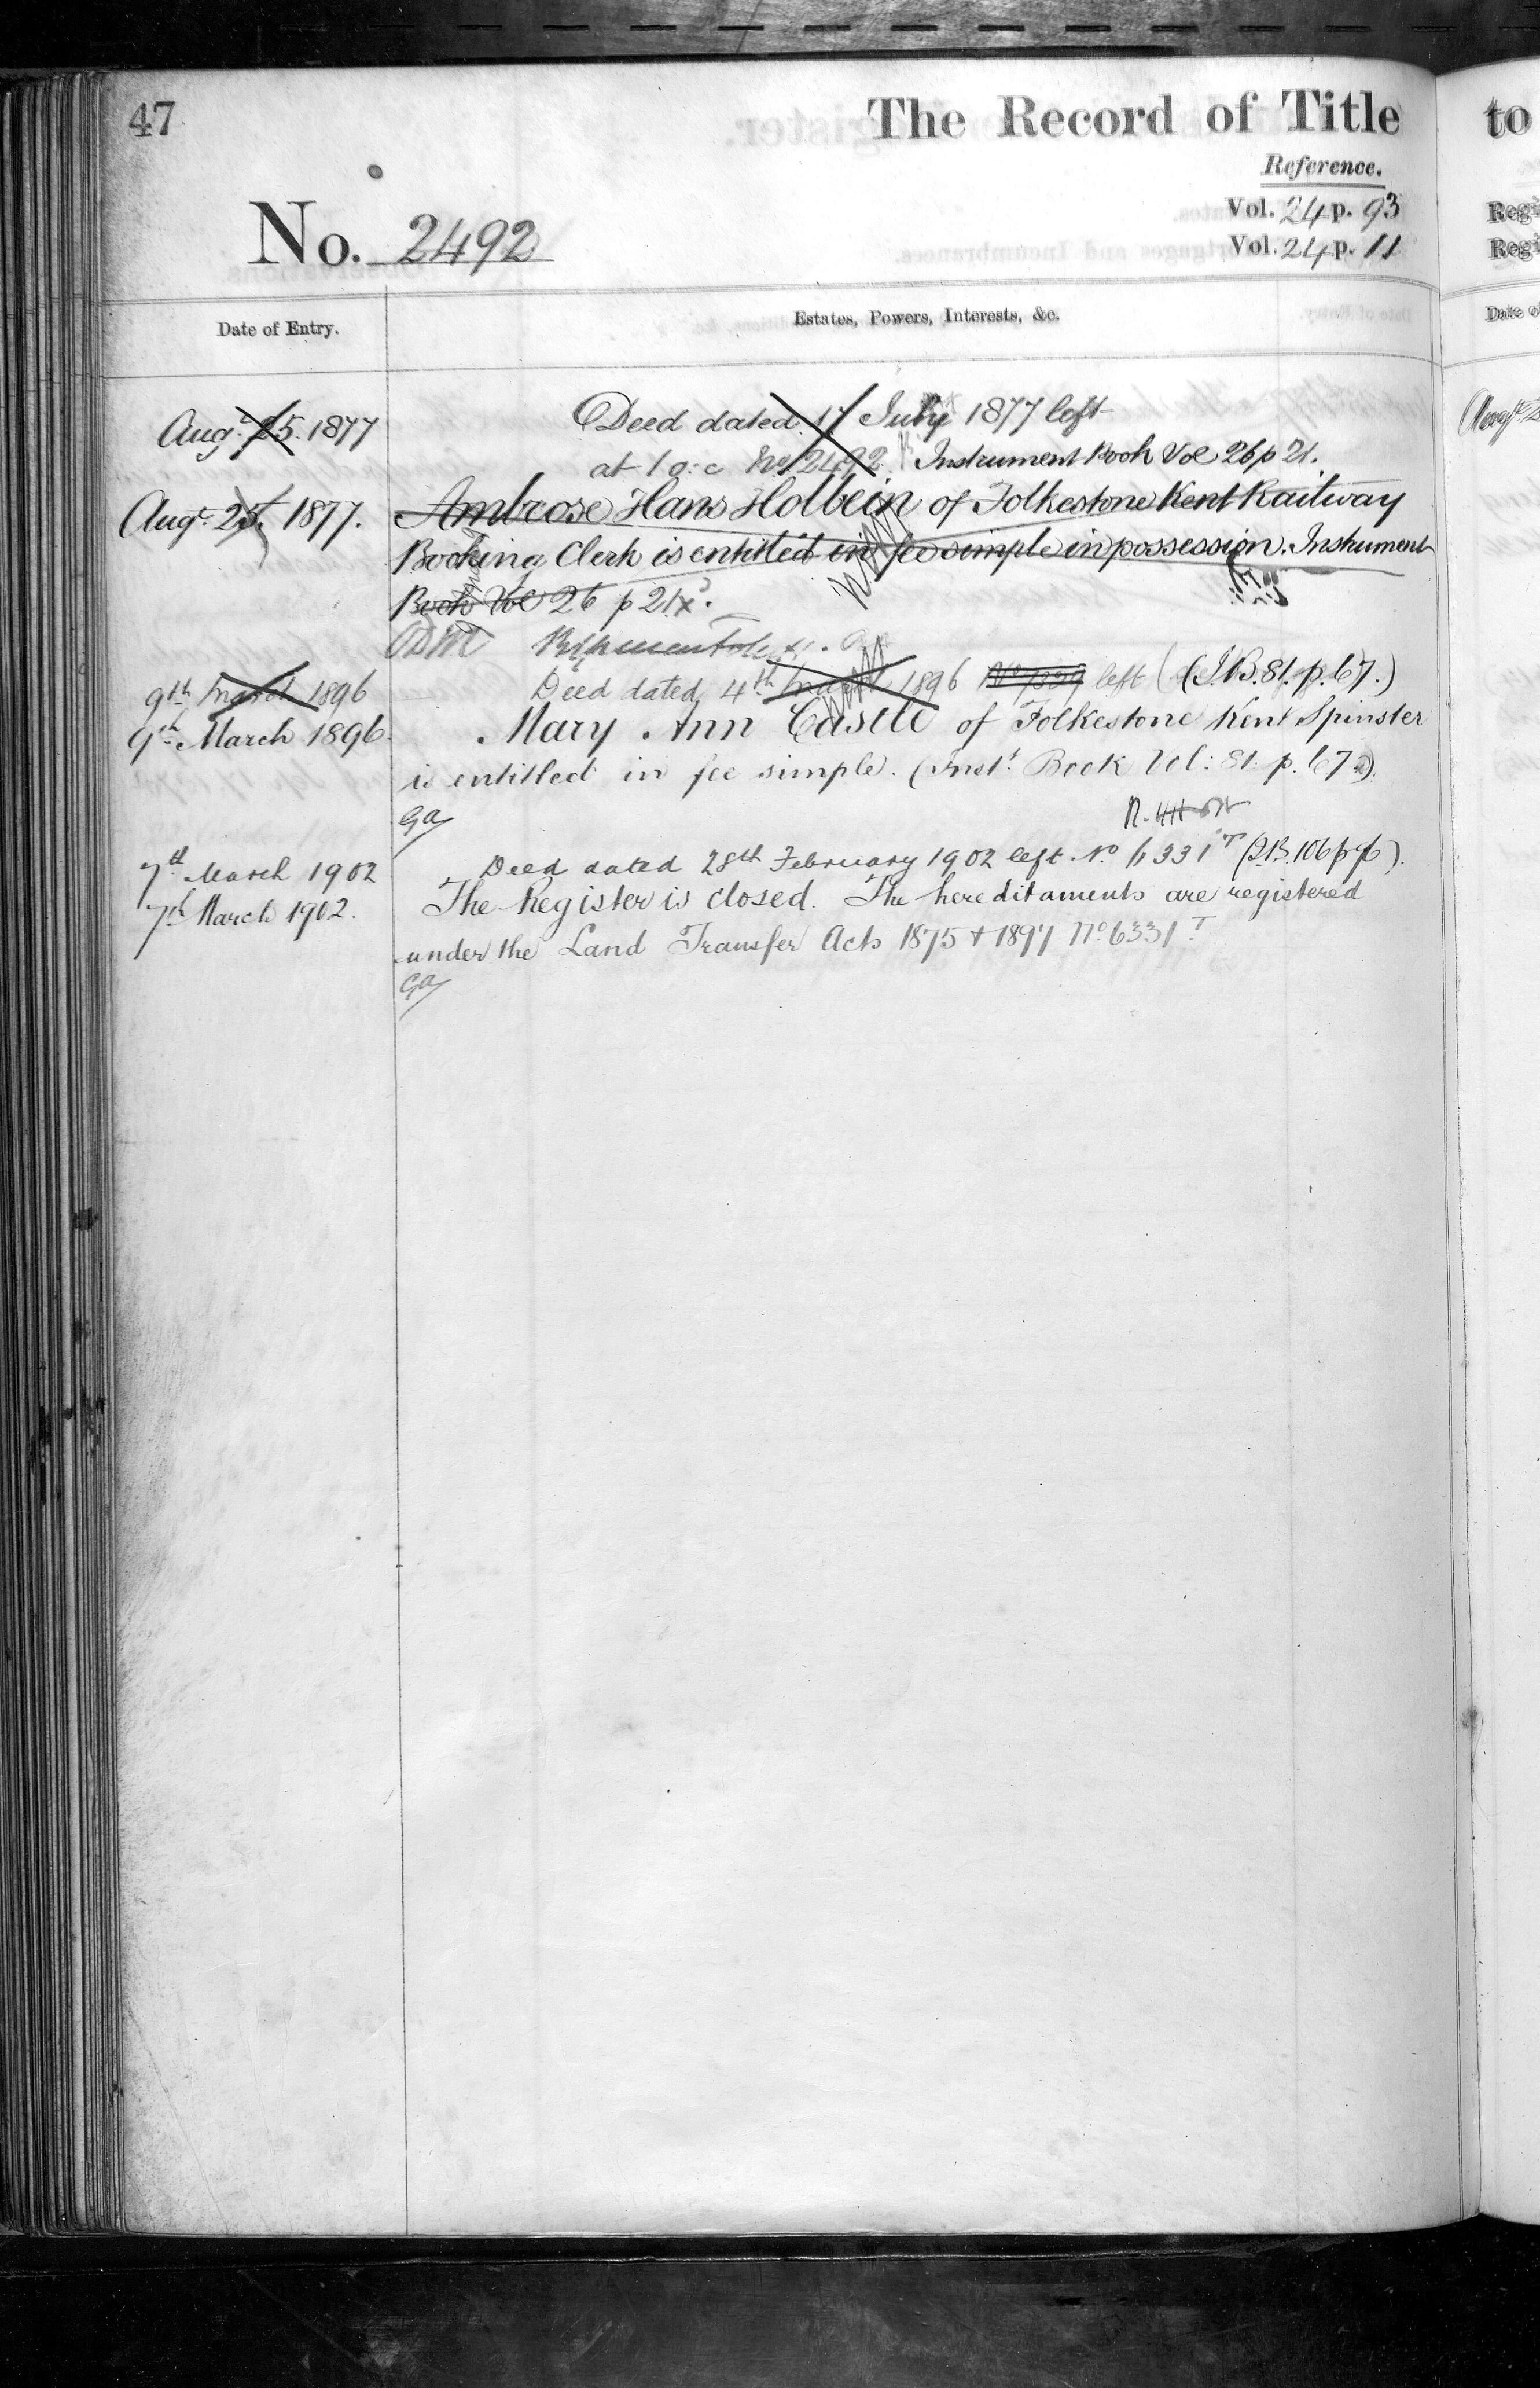 47
The Record of Title
to
Reference.
Vol. 24 p. 93
Vol. 24 p. 11
Regi
Regi
No. 2492
Date of Entry.
Estates, Powers, Interests, &c.
Date of
Augt. 25. 1877
Deed dated 17 July 1877 left
at 1 o:c No 2492. Instrument Book Vol 26 p 21.
Augt. 25. 1877.
Ambrose Hans Holbein of Folkestone Kent Railway
Booking Clerk is entitled in fee simple in possession. Instrument
Book Vol 26 p 21
9th March 1896
Deed dated 4th March 1896 left (I.B. 81. p. 67.)
9th March 1896.
Mary Ann Castle of Folkestone Kent Spinster
is entitled in fee simple. (Inst. Book Vol: 81. p. 67).
Ga
7th March 1902
Deed dated 28th February 1902 left No 6331 T (I.B. 106 p ).
7th March 1902.
The Register is closed. The hereditaments are registered
under the Land Transfer Acts 1875 & 1897 No 6331 T
Ga